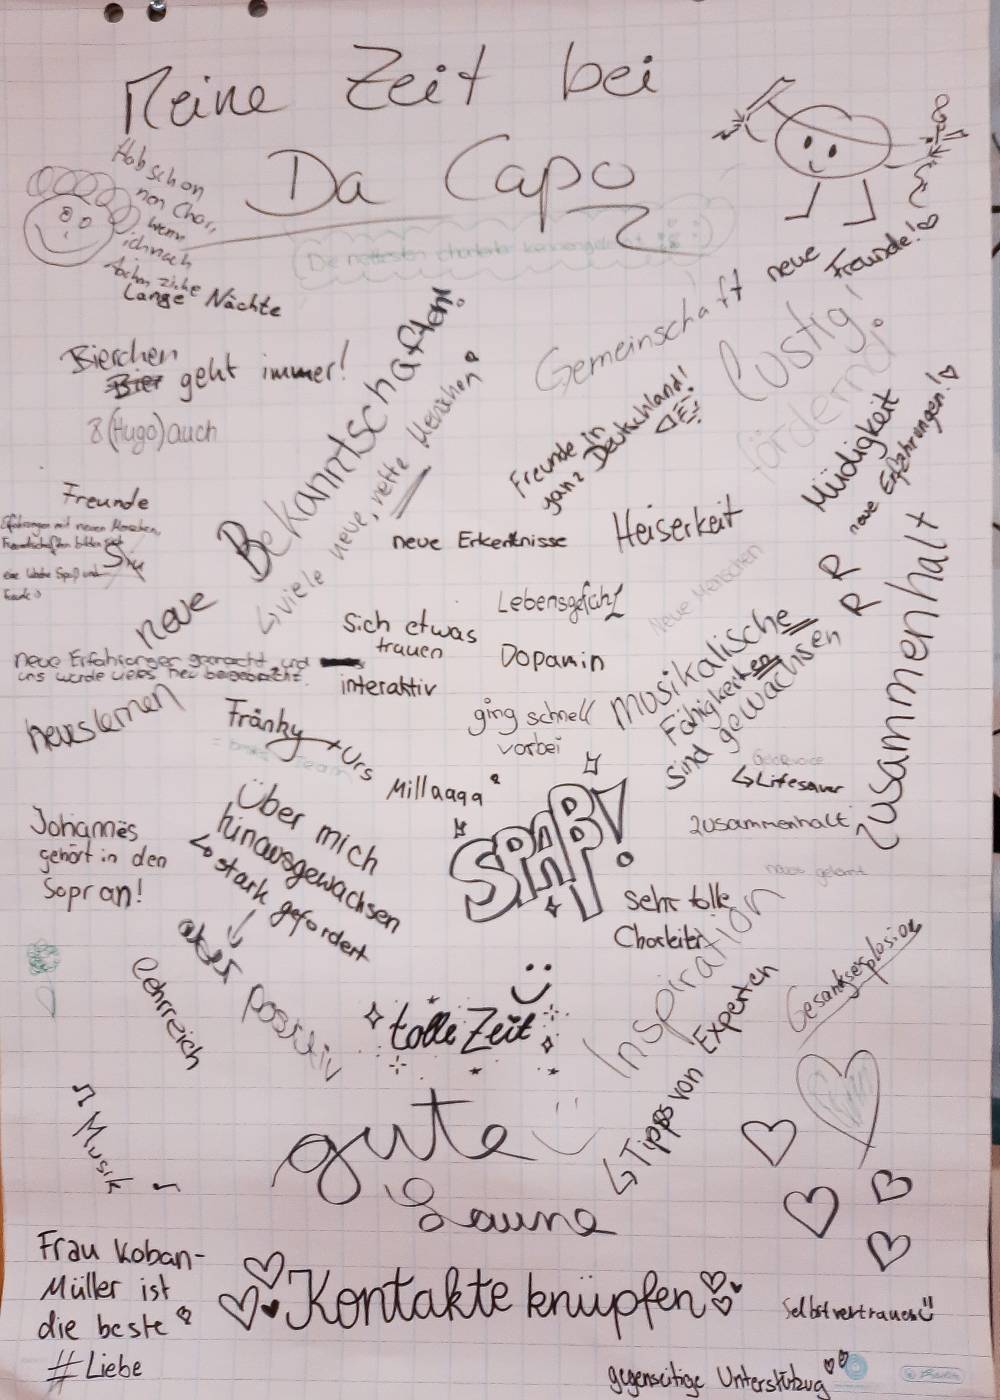 Meine Zeit bei
Da Capo
Hab schon
non Chor,
wenn
ich nach
Lange Nächte
neue
Freunde!
Gemeinschaft
lustig!
fördernd
Bierchen
Bier geht immer!
8 (Hugo) auch
neue Bekanntschaften!
↳ viele neue, nette Menschen
Freunde in
ganz Deutschland!
Müdigkeit
neue Erfahrungen!
Freunde
Erfahrungen mit neuen Menschen,
neue Erkentnisse
Heiserkeit
R
R
Zusammenhalt
Lebensgefühl
Neue Menschen
Sich etwas
trauen
Dopamin
interaktiv
musikalische
Fähigkeiten
sind gewachsen
neue Erfahrungen gemacht und
uns wurde vieles neu beigebracht.
neues lernen
Fränky + Urs
ging schnell
vorbei
Millaaaa
↳ Lifesaver
Zusammenhalt
SPAß!
Johannes
gehört in den
Sopran!
Über mich
hinausgewachsen
↳ stark gefordert
aber positiv
sehr tolle
Chorleiter
neues gelernt
lehrreich
tolle Zeit
Inspiration
↳ Tipps von Experten
Gesangsexplosion
Musik
gute
Laune
Frau Koban-
Müller ist
die beste
#Liebe
Kontakte knüpfen
Selbstvertrauen
gegenseitige Unterstüzug